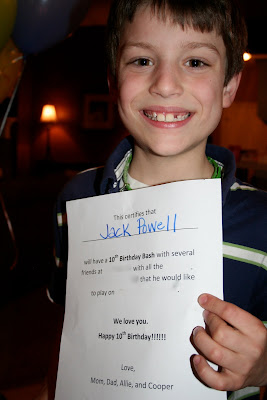 This certifies that
Jack Powell
will have a 10th Birthday Bash with several
friends at with all the
that he would like
to play on
We love you.
Happy 10th Birthday!!!!!!
Love,
Mom, Dad, Allie, and Cooper